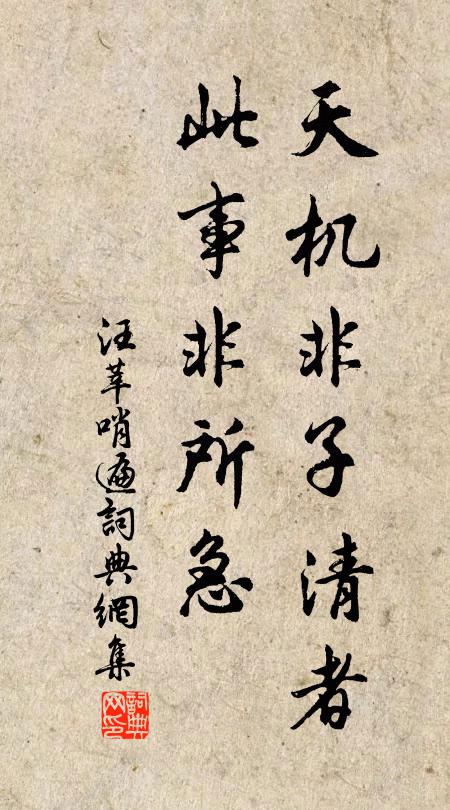 天机非子清者
此事非所急
汪莘哨遍詞典網集
詞典网印